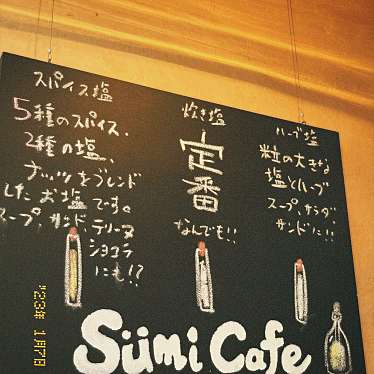 スパイス塩
5種のスパイス、
2種の塩、
ナッツをブレンド
したお塩です。
スープ、サンド、テリーヌ
ショコラ
にも!?
炊き塩
定番
なんでも!!
ハーブ塩
粒の大きな
塩とハーブ
スープ、サラダ、
サンドに!!
Sümi Cafe
'23年 1月7日